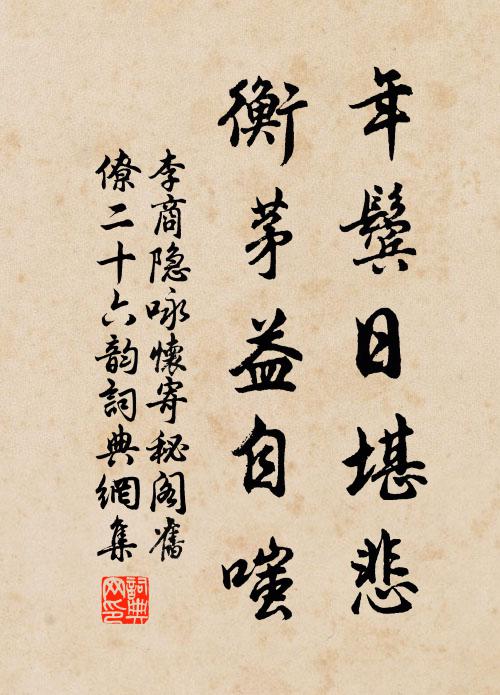 年鬓日堪悲
衡茅益自嗤
李商隐咏懷寄秘阁舊
僚二十六韵詞典網集
詞典
网印